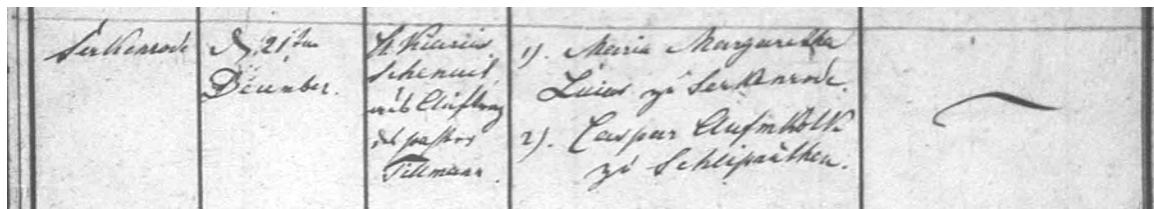 Serkenrode
d. 21ten
December.
H. Vicarius
Schenuit
aus Auftrag
des pastor
Tillmann
1). Maria Margaretha
zu Serkenrode.
2). Caspar Aufmkolk
zu Schliprüthen.